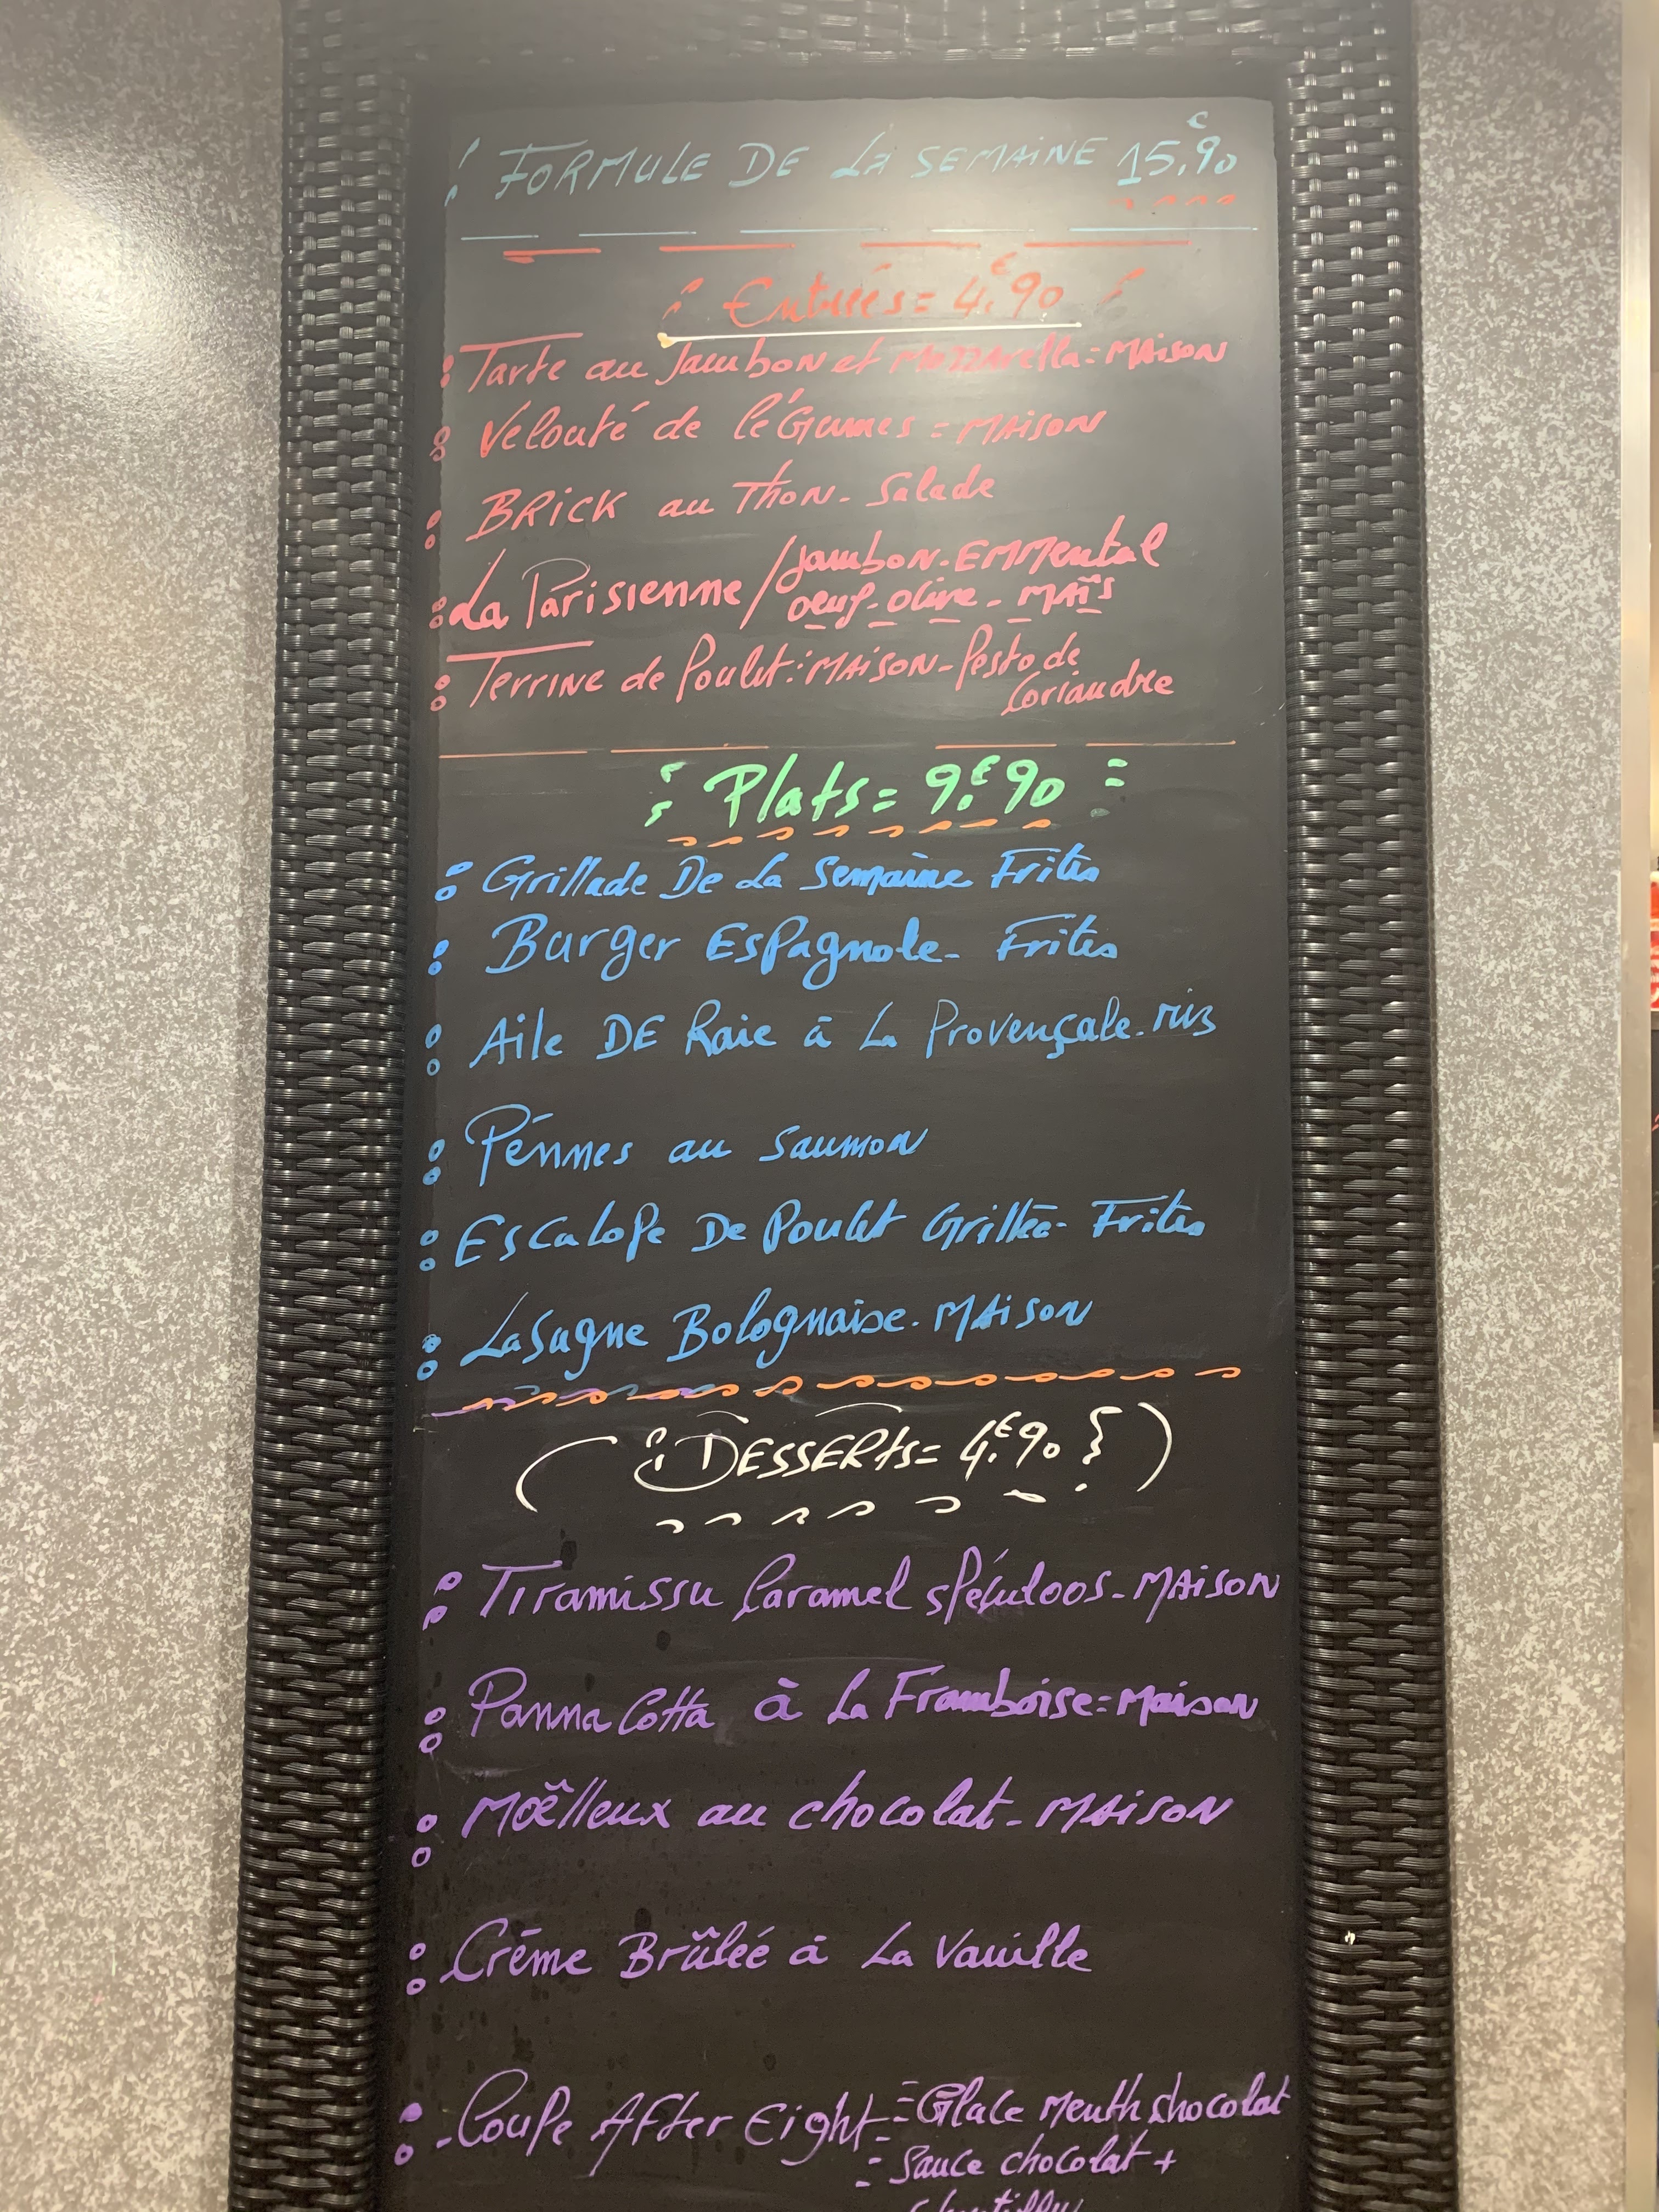 FORMULE DE LA SEMAINE 15.€90
Entrées = 4.€90
Tarte au Jambon et Mozzarella = MAison
Velouté de léGumes = MAison
BRiCK au Thon - Salade
La Parisienne / Jambon - EMMental
oeuf - olive - MAïs
Terrine de Poulet : MAison - Pesto de
Coriandre
Plats = 9.€90
Grillade De La Semaine Frites
Burger Espagnole - Frites
Aile DE Raie à La Provençale - riz
Pénnes au Saumon
Escalope De Poulet Grillée - Frites
Lasagne Bolognaise - MAison
DESSERts = 4.€90
Tiramissu Caramel spéculoos - MAison
Panna Cotta à La Framboise = Maison
Moëlleux au chocolat - MAison
Crème Brûleé à La Vanille
Coupe After Eight = Glace Menth chocolat
= Sauce chocolat +